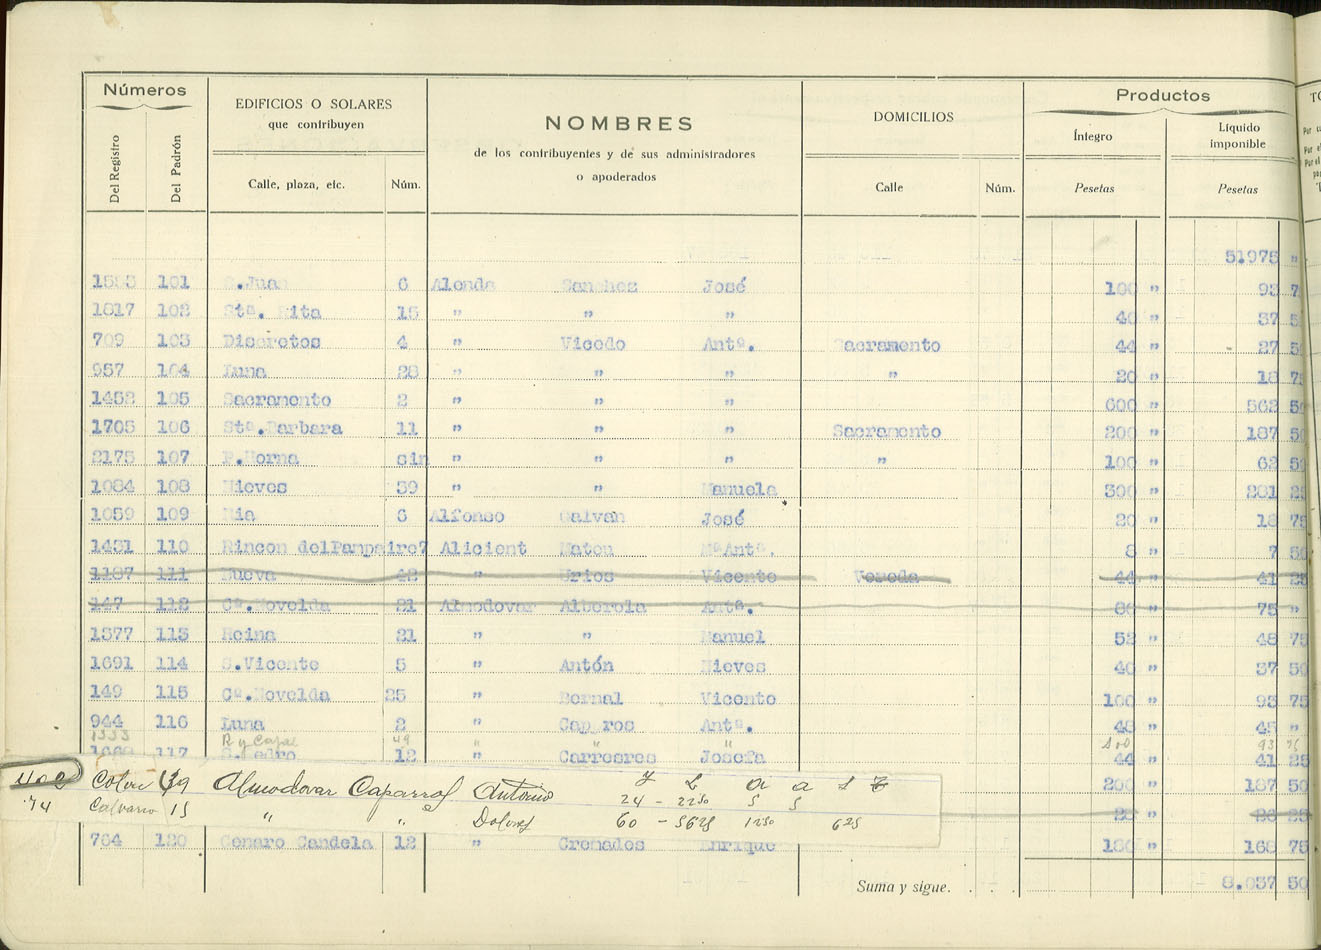 Números
EDIFICIOS O SOLARES
que contribuyen
NOMBRES
de los contribuyentes y de sus administradores
o apoderados
DOMICILIOS
Productos
Íntegro
Líquido
imponible
Del Registro
Del Padrón
Calle, plaza, etc.
Núm.
Calle
Núm.
Pesetas
Pesetas
51975 "
101 S.Juan 6 Alenda Sanchez José 100 " 93 7
1817 102 Stª. Rita 15 " " " 40 " 37 5
709 103 Discretos 4 " Vicedo Antª. Sacramento 44 " 27 5
957 104 Luna 28 " " " " 20 " 18 75
1452 105 Sacramento 2 " " " 600 " 562 50
1705 106 Stª.Barbara 11 " " " Sacramento 200 " 187 50
2175 107 P.Horna sin " " " " 100 " 62 50
1084 108 Nieves 39 " " Manuela 300 " 281 25
1059 109 Mia 6 Alfonso Galvan José 20 " 18 75
1431 110 Rincon delPampaire7 Alicient Mateu MªAntª. 8 " 7 50
1187 111 Nueva 42 " Urios Vicente Vereda 44 " 41 25
147 112 Cª.Novelda 21 Almodovar Alberola Antª. 80 " 75 "
1377 113 Reina 21 " " Manuel 52 " 48 75
1691 114 S.Vicente 5 " Antón Nieves 40 " 37 50
149 115 Cª.Novelda 25 " Bernal Vicente 100 " 93 75
944 116 Luna 2 " Caparros Antª. 48 " 45 "
1333 R y Cajal 49 " " " 100 93 75
117 S.Pedro 12 " Carreres Josefa 44 " 41 25
402 Colon 39 Almodovar Caparros Antonio 24 - 2250 200 " 187 50
74 Calvario 15 " " Dolores 60 - 5625 1250 625
764 120 Genaro Candela 12 " Grenados Enrique 180 " 168 75
Suma y sigue. . . . 8.037 50